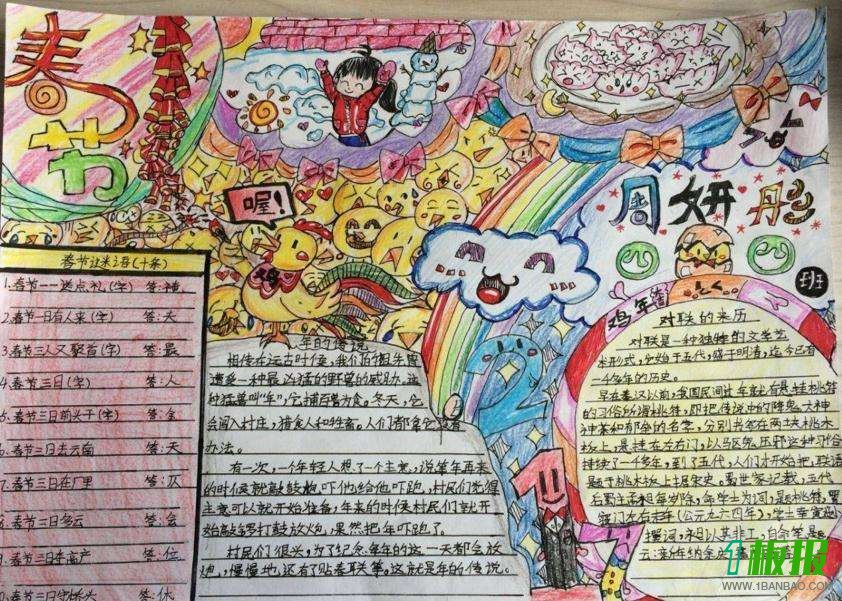 春节
喔!
鸡
周妍彤
班
鸡年
春节谜语(十条)
1.春节一送点礼(字) 答:
2.春节一日有人来(字) 答:夫
3.春节三人又聚首(字) 答:最
4.春节三日(字) 答:人
5.春节三日前头干(字) 答:
春节三日去云南 答:天
春节三日在厂里 答:仄
春节三日多云 答:会
春节三日 高产 答:位
春节三日 答:休
年的传说
相传在远古时候,我们的祖先曾
遭受一种最凶猛的野兽的威胁。这
种猛兽叫"年",它捕百兽为食。冬天,它
会闯入村庄,猎食人和牲畜。人们都拿它没有
办法。
有一次,一个年轻人想了一个主意,说等年再来
的时候就敲鼓 吓他给他吓跑,村民们觉得
主意可以就开始准备,年来的时候村民们就开
始敲锣打鼓放炮,果然把年吓跑了。
村民们很兴,为了纪念每年的这一天都会放
炮,慢慢地,还有了贴春联等。这就是年的传说。
对联的来历
对联是一种独特的文学艺
术形式,它始于五代,盛于明清,迄今已有
一千多年的历史。
早在秦汉以前,我国民间过年就有悬挂桃符
的习俗所谓桃符,即把传说中的降鬼大神
神荼和郁垒的名字,分别书在两块桃木
板上,悬挂在左右门,以 压邪这种习俗
持续了一千多年,到了五代,人们才开始把联语
题于桃木板上据宋史。蜀世家记载,五代
后蜀主孟昶每岁除,年学士为词,题桃符,置
寝门左右 年(公元九六四年),学士幸寅逊
撰词,昶以其非工,自命笔题
云:新年纳余
2017
1板报
WWW.1BANBAO.COM